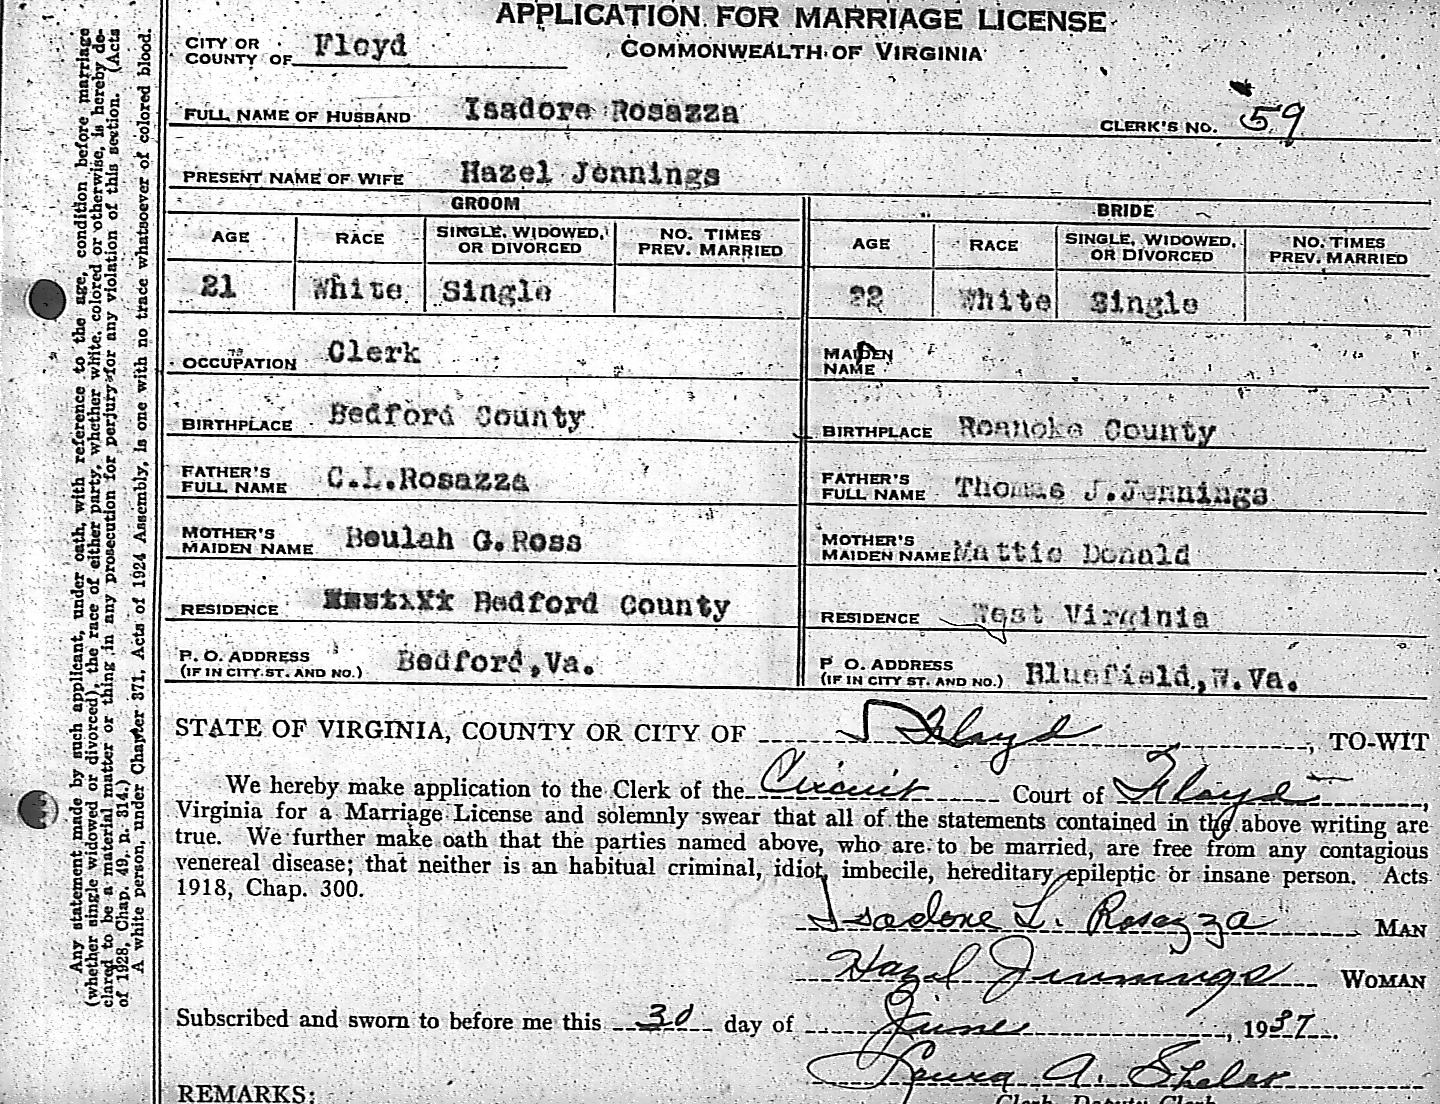 APPLICATION FOR MARRIAGE LICENSE
COMMONWEALTH OF VIRGINIA
CITY OR
COUNTY OF Floyd
FULL NAME OF HUSBAND Isadore Rosazza
CLERK'S NO. 59
PRESENT NAME OF WIFE Hazel Jennings
GROOM BRIDE
AGE RACE SINGLE, WIDOWED, OR DIVORCED NO. TIMES PREV. MARRIED AGE RACE SINGLE, WIDOWED, OR DIVORCED NO. TIMES PREV. MARRIED
21 White Single 22 White Single
OCCUPATION Clerk MAIDEN NAME
BIRTHPLACE Bedford County BIRTHPLACE Roanoke County
FATHER'S FULL NAME C.L.Rosazza FATHER'S FULL NAME Thomas J.Jennings
MOTHER'S MAIDEN NAME Beulah G.Ross MOTHER'S MAIDEN NAME Mattie Donald
RESIDENCE Bedford County RESIDENCE West Virginia
P. O. ADDRESS (IF IN CITY ST. AND NO.) Bedford,Va. P O. ADDRESS (IF IN CITY ST. AND NO.) Bluefield,W.Va.
STATE OF VIRGINIA, COUNTY OR CITY OF Floyd, TO-WIT
We hereby make application to the Clerk of the Circuit Court of Floyd,
Virginia for a Marriage License and solemnly swear that all of the statements contained in the above writing are
true. We further make oath that the parties named above, who are to be married, are free from any contagious
venereal disease; that neither is an habitual criminal, idiot, imbecile, hereditary epileptic or insane person. Acts
1918, Chap. 300.
Isadore L. Rosazza MAN
Hazel Jennings WOMAN
Subscribed and sworn to before me this 30 day of June, 1937.
Laura A. Shelor
Clerk, Deputy Clerk
REMARKS:
Any statement made by such applicant, under oath, with reference to the age, condition before marriage
(whether single widowed or divorced), the race of either party, whether white, colored or otherwise, is hereby de-
clared to be a material matter or thing in any prosecution for perjury for any violation of this section. (Acts
of 1928, Chap. 49, p. 314.)
A white person, under Chapter 371, Acts of 1924 Assembly, is one with no trace whatsoever of colored blood.